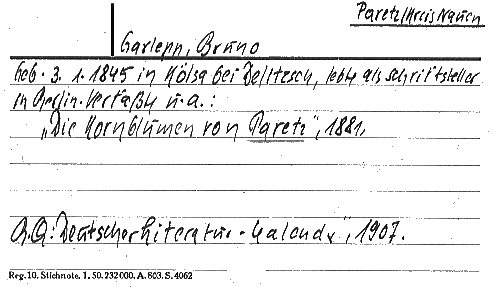 Paretz/Kreis Nauen
Garlepp, Bruno
Geb. 3. 1. 1845 in Kölsa bei Delitzsch, lebte als Schriftsteller
in Berlin. Verfaßte u. a.:
„Die Kornblumen von Paretz", 1881.
Deutscher Literatur-Kalender", 1907.
Reg. 10. Stichnote. 1. 50. 232000. A. 803. S. 4062